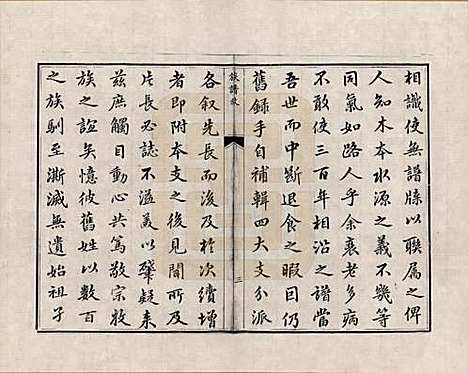 相識使無譜牒以聯属之俾
人知木本水源之義不幾等
同氣如路人乎余衰老多病
不敢使三百年相沿之譜當
吾世而中斷退食之暇因仍
舊録手自補輯四大支分派
族譜敘
三
各叙先長而後及於次續增
者即附本支之後見聞所及
片長必誌不溢美以肇疑来
兹庶觸目動心共篤敬宗牧
族之誼矣憶彼舊姓以數百
之族馴至澌滅無遺始祖子